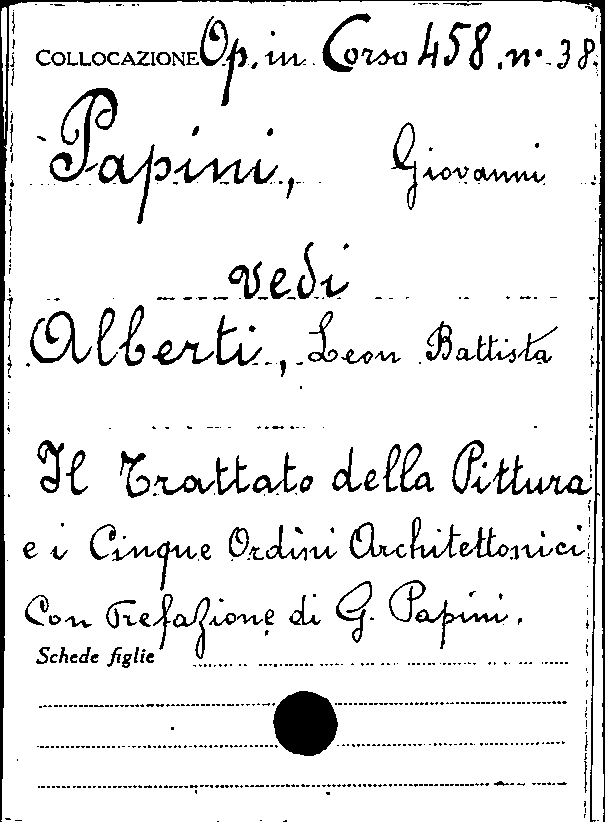 COLLOCAZIONE Op. in Corso 458. n. 38.
Papini, Giovanni
vedi
Alberti, Leon Battista
Il Trattato della Pittura
e i Cinque Ordini Architettonici
Con Prefazione di G. Papini.
Schede figlie